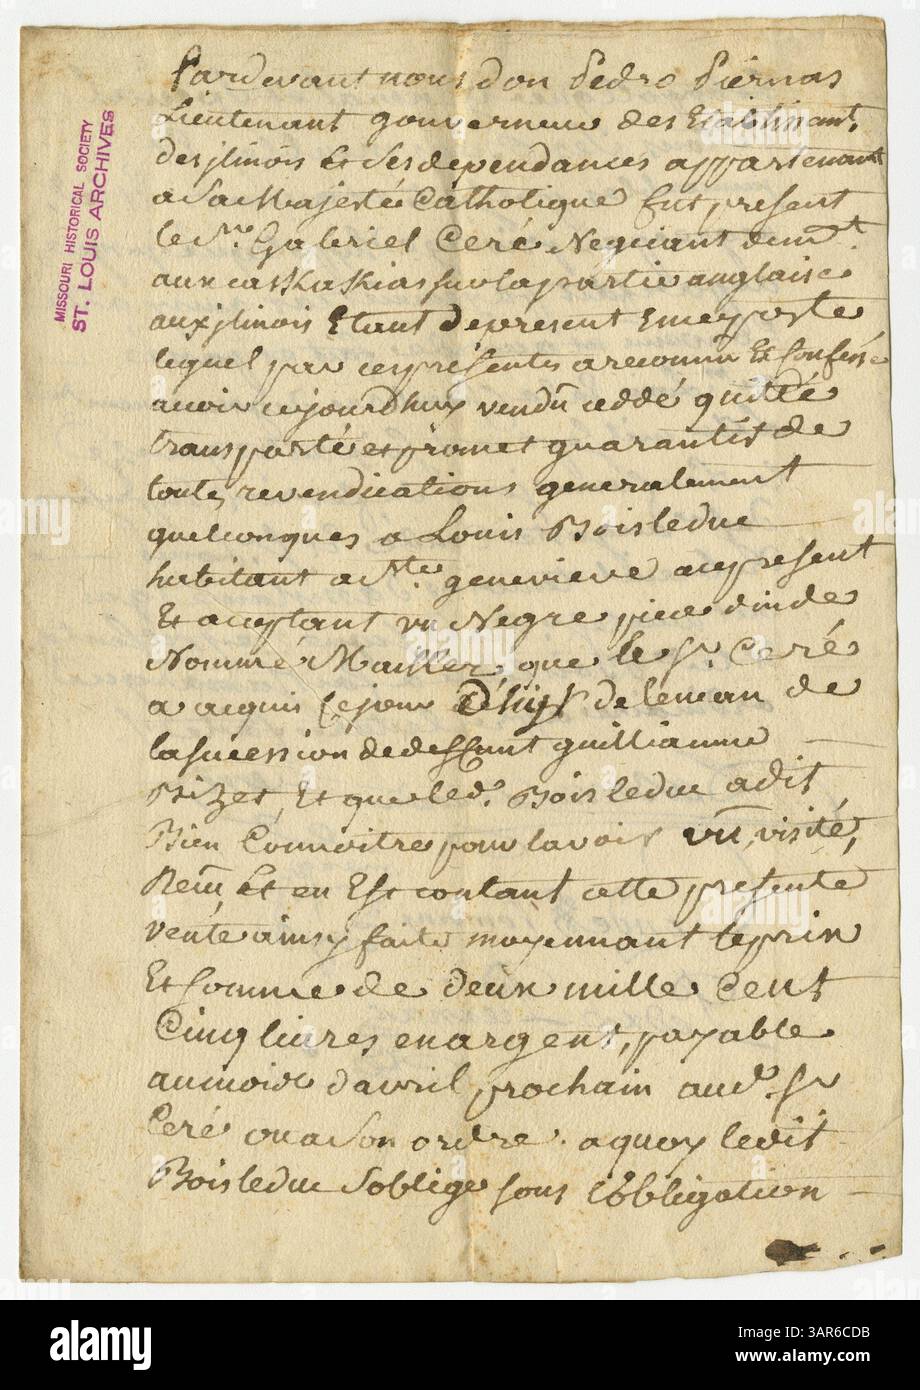 Pardevant nous don Pedro Piernas
Lieutenant gouverneur des Etablissant.
des jlinois Et Ses dependances appartenant
a Sa Majesté Catholique fut present
le Sr. Gabriel Ceré Negociant demt.
aux caskaskias sur la partie anglaise
aux jlinois Etant de present En ce poste
lequel par ces présentes a reconnu Et Confessé
avoir cejourdhuy vendu ceddé quitté
transporté et promet guarantir de
toutes revendications generalement
quelconques a Louis Boisleduc
habitant a Ste. genevieve a ce present
Et acceptant un Negre piece dinde
Nommé que le Sr. Ceré
a acquis ce jour d'huy de lencan de
la sucession de deffunt guilliaume
Bizet, Et que led. Boisleduc a dit
Bien Connoitre pour lavoir vu, visité,
Et en Est contant cette presente
vente ainsy faite moyennant le prix
Et Somme de deux mille Cent
Cinq livres en argent, payable
au mois davril prochain aud. Sr
Ceré ou a Son ordre. a quoy ledit
Boisleduc Soblige sous Lobbligation
MISSOURI HISTORICAL SOCIETY
ST. LOUIS ARCHIVES
alamy
Image ID: 3AR6CDB
www.alamy.com